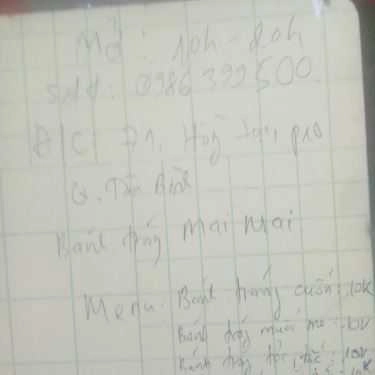 Mở: 10h - 20h
SĐT: 0986392500
Đ/C: Đ. , P10
Q. Tân Bình
Bánh tráng Mai Mai
Menu. Bánh tráng cuốn: 10k
Bánh tráng muối : 10k
Bánh tráng tắc: 10k